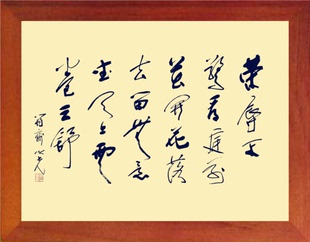 荣辱不
驚看庭前
花開花落
去留無意
望天上雲
卷云舒